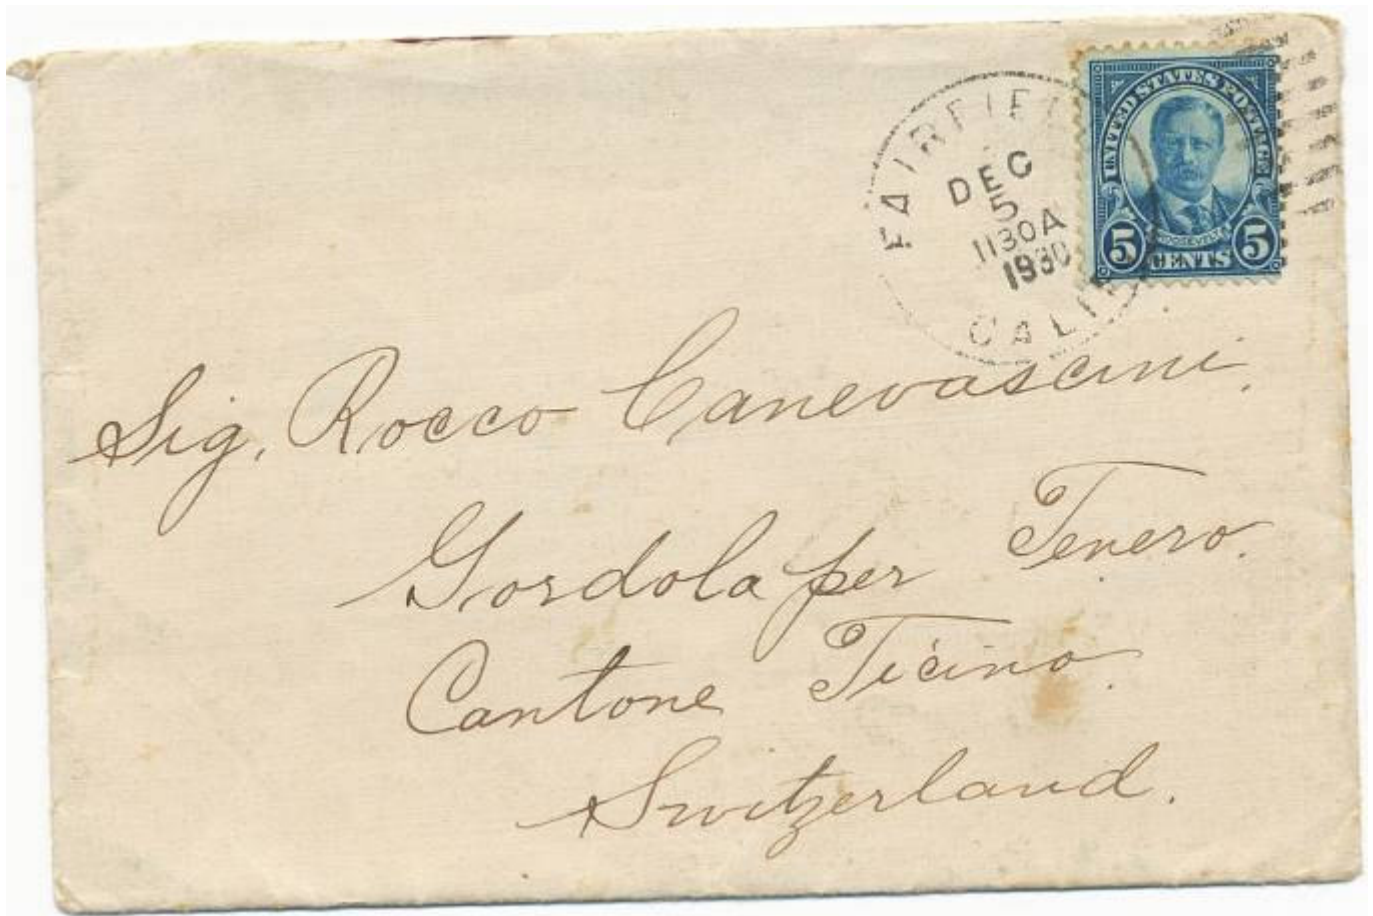 FAIRFIEL
DEC
5
1130A
1930
CALIF
UNITED STATES POSTAGE
ROOSEVELT
5 CENTS 5
Sig. Rocco Canevascini.
Gordola per Tenero.
Cantone Ticino.
Switzerland.